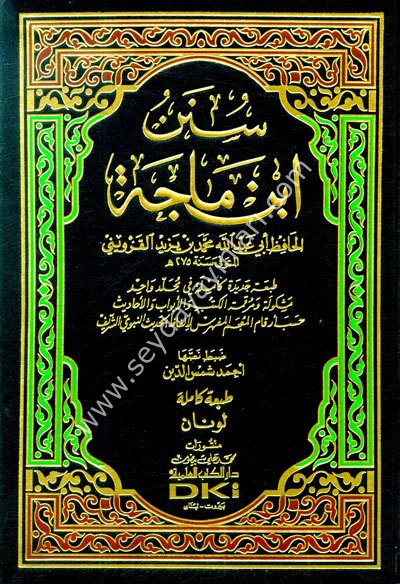 سُنَنُ
ابن مَاجَة
الحَافِظ أَبي عَبد الله مُحَمَّد بن يَزِيد القَزويني
المتوفى سنة ٢٧٥ هـ
طبعَة جَديدة كامِلة في مجَلّد وَاحِد
مشكولة ومُرقمة الكتب والأبواب والأحاديث
حسب أرقام المعجم المفهرس لألفاظ الحديث النبوي الشريف
ضبط نصّها
أحمد شمس الدين
طبعة كاملة
لونان
منشورات
محمد علي بيضون
دار الكتب العلمية
DKi
بيروت - لبنان
www.seydayayinlari.com